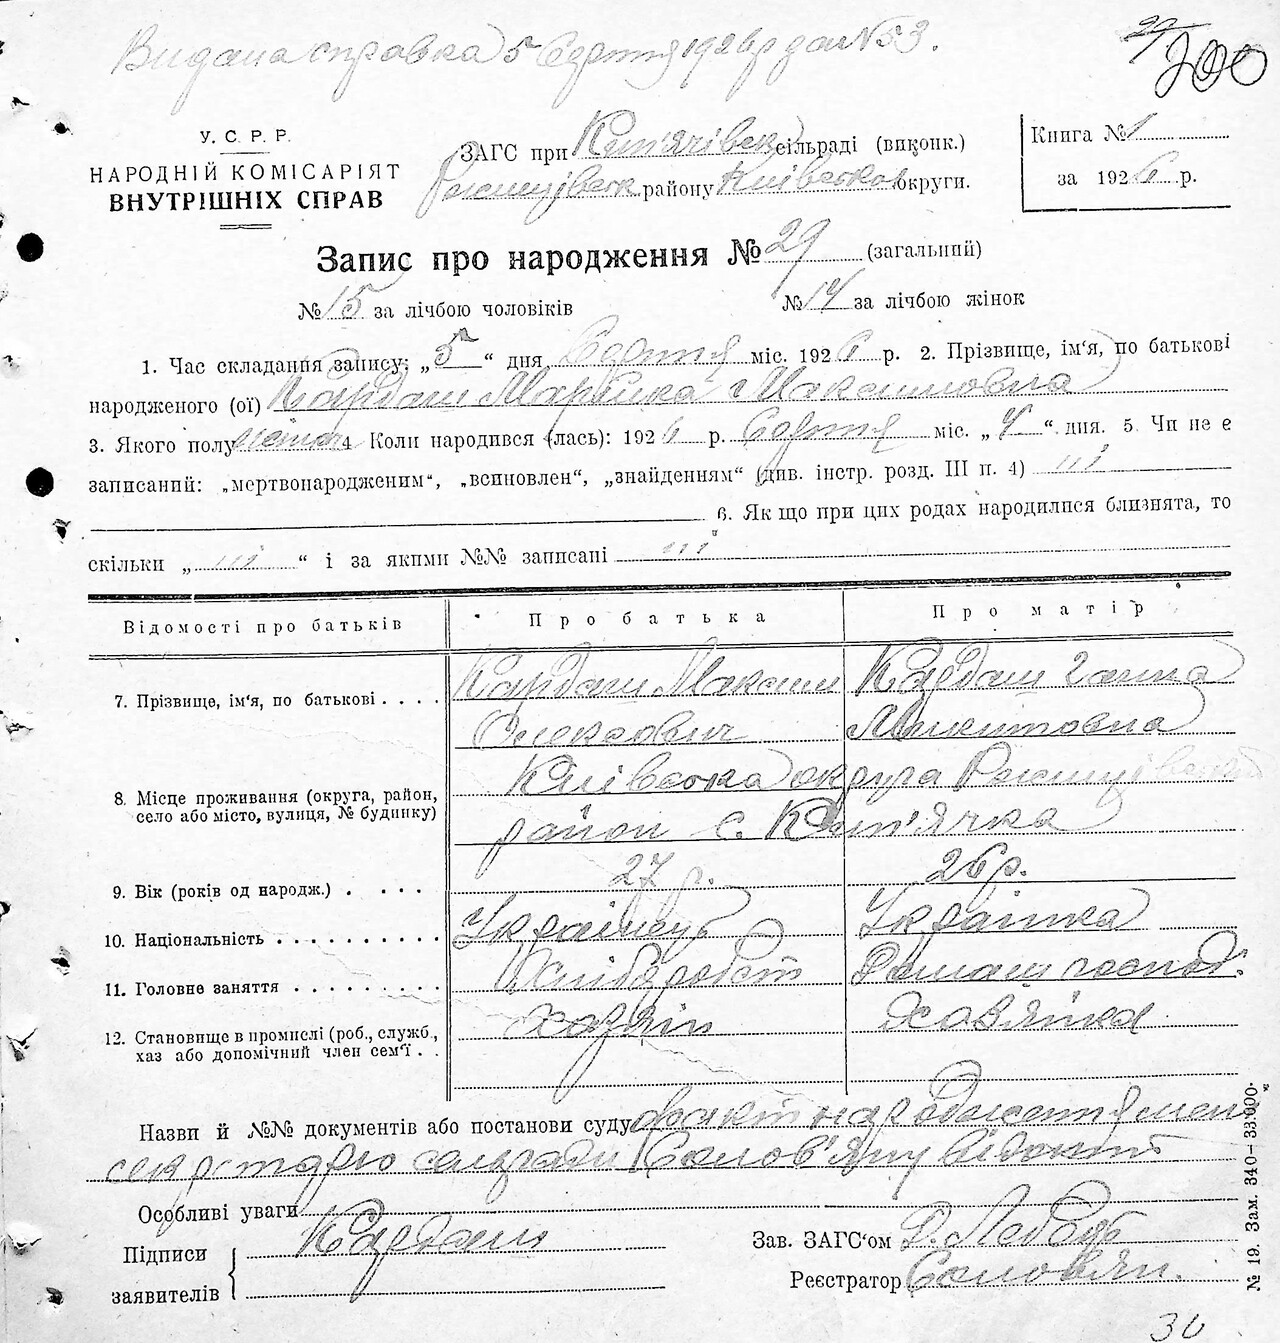 Видана справка 5 Серпня 1926 р за №53.
22/200
У. С. Р. Р.
НАРОДНІЙ КОМІСАРІЯТ
ВНУТРІШНІХ СПРАВ
ЗАГС при сільраді (виконк.)
району Київської округи.
Книга № 1
за 1926 р.
Запис про народження № 29 (загальний)
№ 15 за лічбою чоловіків № 14 за лічбою жінок
1. Час складання запису: „5“ дня Серпня міс. 1926 р. 2. Прізвище, ім'я, по батькові
народженого (ої) Кардаш Марійка Максимовна
3. Якого полу 4. Коли народився (лась): 1926 р. Серпня міс. „4“ дня. 5. Чи не є
записаний: „мертвонародженим“, „всиновлен“, „знайденням“ (див. інстр. розд. III п. 4)
6. Якщо при цих родах народилися близнята, то
скільки „ “ і за якими №№ записані
Відомості про батьків
Про батька
Про матір
7. Прізвище, ім'я, по батькові
Кардаш Максим
Олексович
Кардаш Ганна
Микитовна
8. Місце проживання (округа, район,
село або місто, вулиця, № будинку)
Київська округа Ржищівський
район с. Кип'ячка
9. Вік (років од народж.)
27 р.
26 р.
10. Національність
Українець
Українка
11. Головне заняття
Хлібороб
Домаш господ.
12. Становище в промислі (роб., служб.,
хаз або допомічний член сем'ї
Хазяїн
Хазяйка
Назви й №№ документів або постанови суду факт народження
секретарю сільради Солов'яну відомий
Особливі уваги
Підписи
заявителів
Кардаш
Зав. ЗАГС'ом Д. Лебедь
Реєстратор Солов'ян.
№ 19. Зам. 340—33.000.